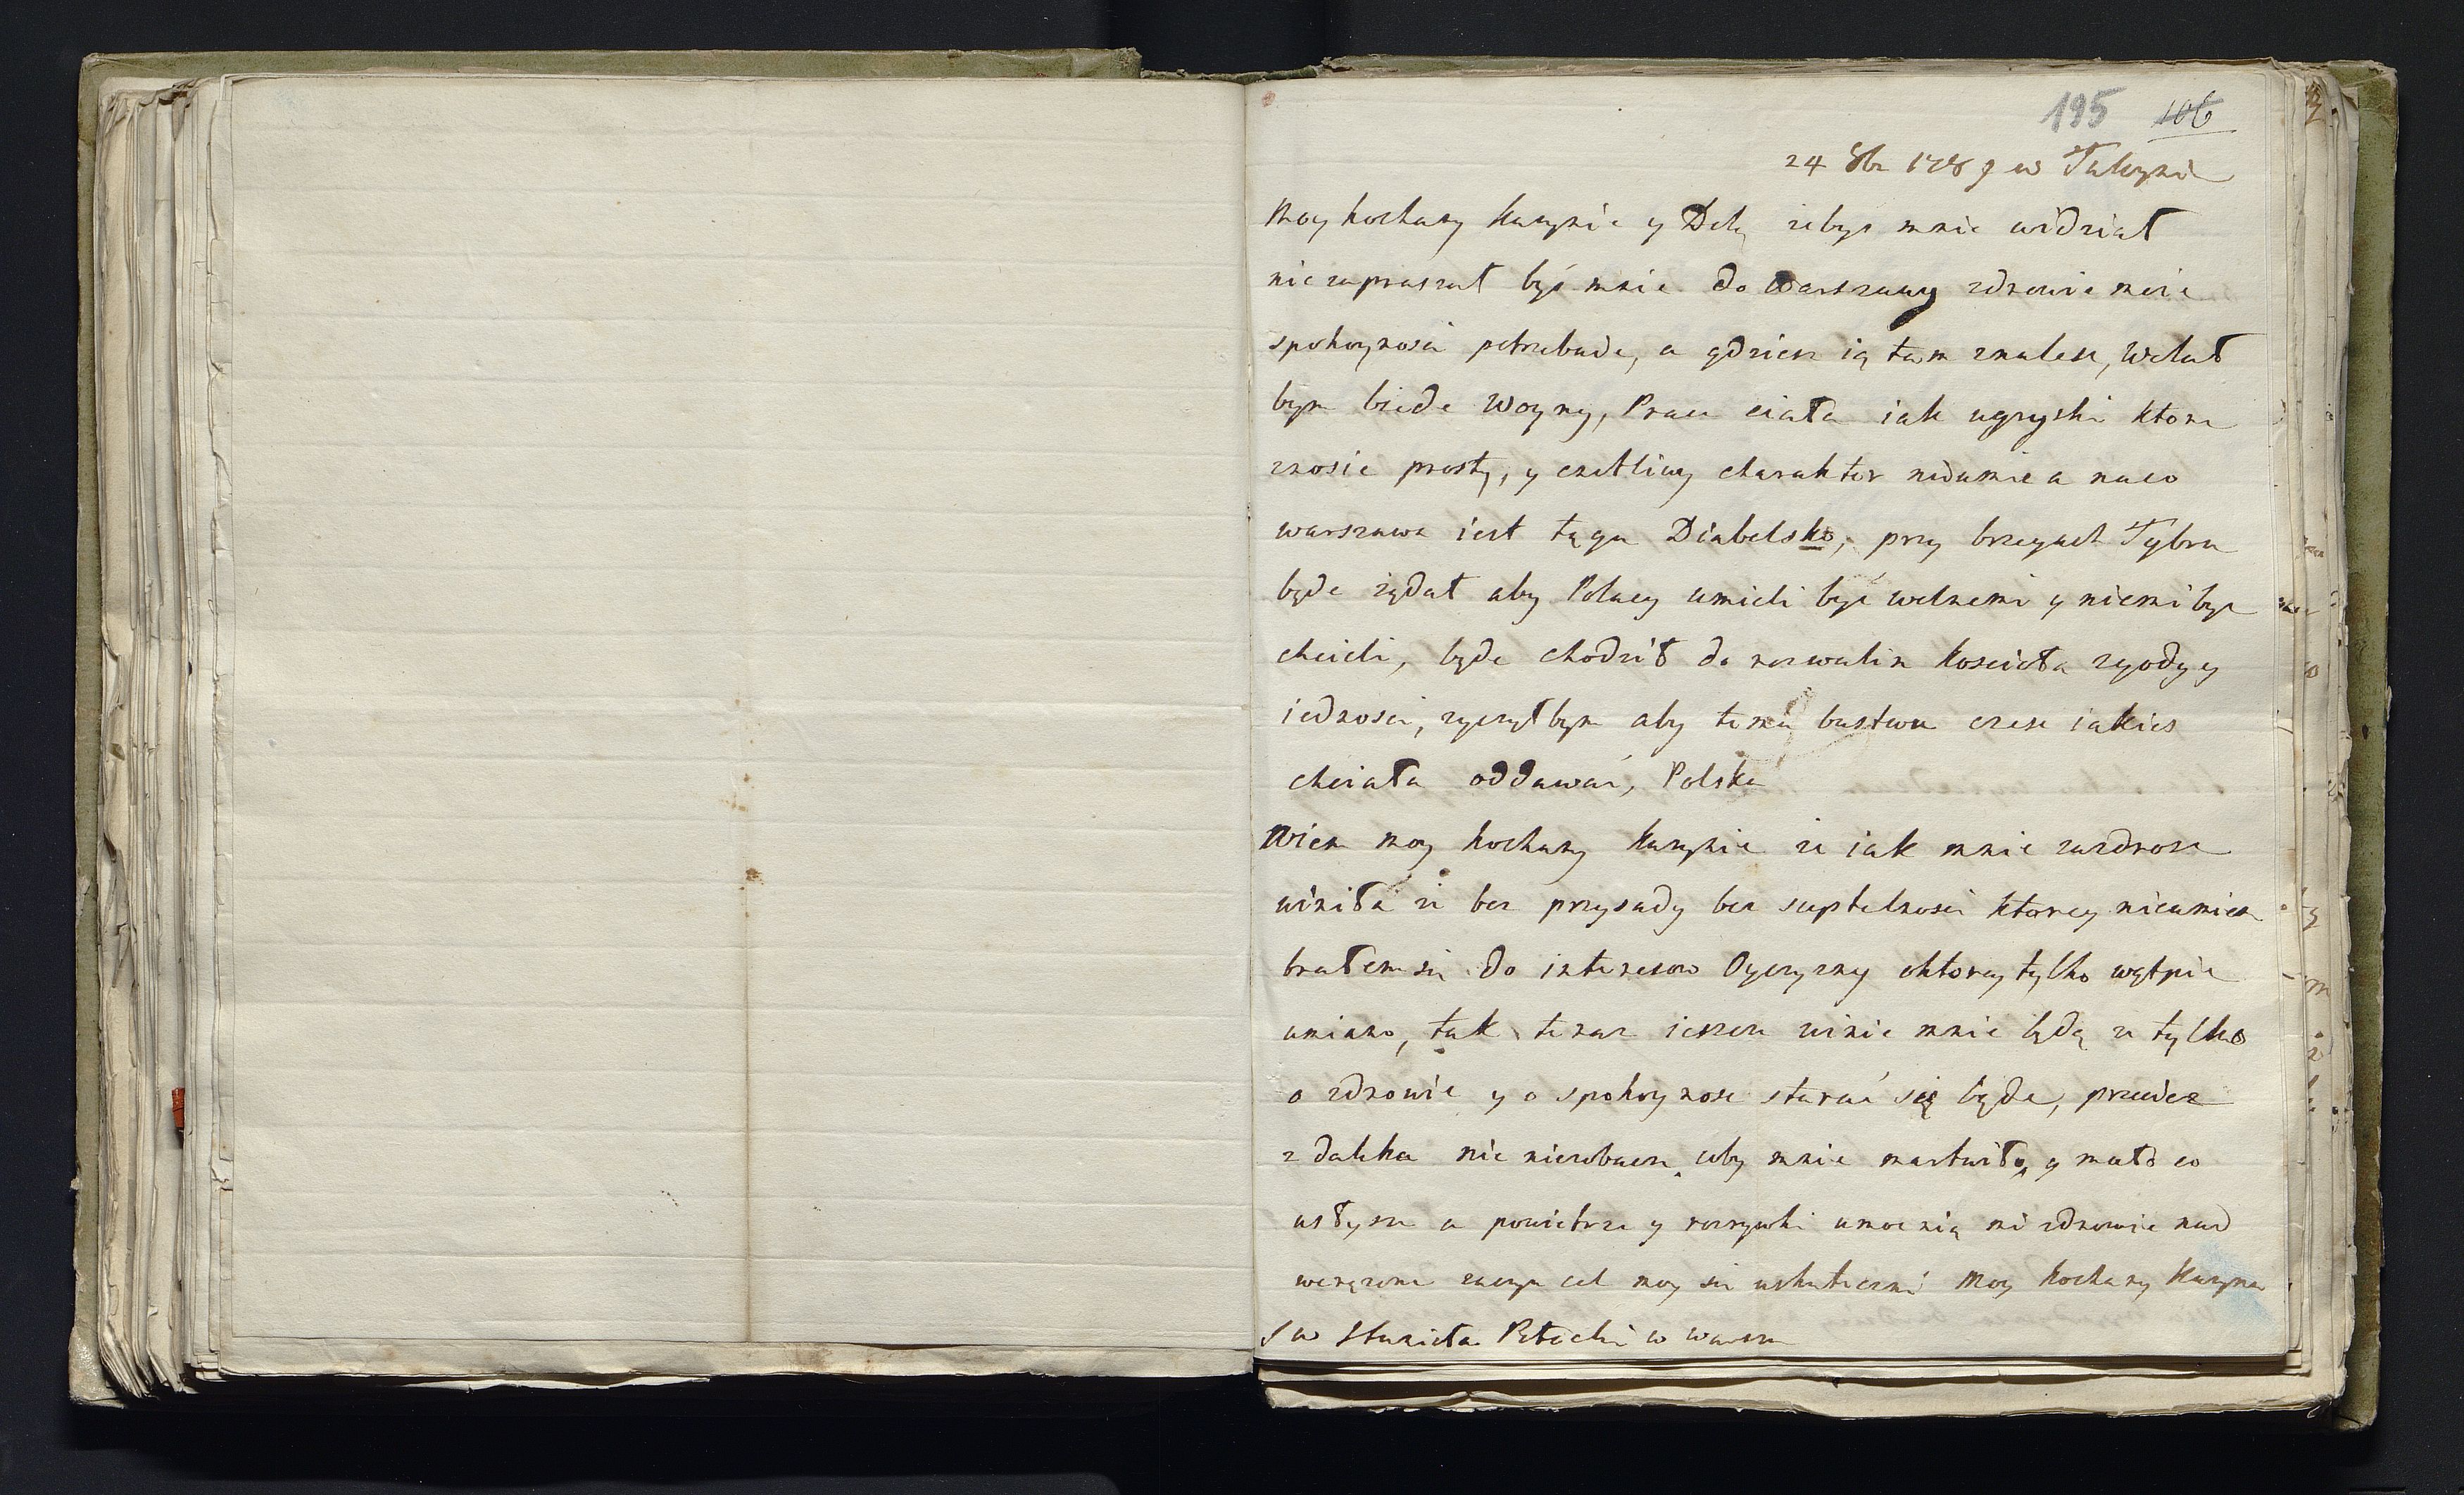 195 106
24 8br 1789 w Tulczyni
Moy kochany Kuzynie y Dely zebys mnie widział
nie zapraszał byś mnie do Warszawy zdrowie moie
spokoynosci potrzebuie, a gdziesz ią tam znalesc, Wolał
bym biede Woyny, Prace ciała iak ugryski ktore
znosic prosty, y cnotliwy charakter nieumie a naco
warszawa iest tęga Diabelsko, przy brzegach Tybru
będe żądał aby Polacy umieli byc wolnemi y niemi byc
chcieli, będe chodził do rozwalin koscioła zgody y
iednosci, zyczył bym aby temu bustwu czesc iakies
chciała oddawać, Polska
Wiem moy kochany Kuzynie ze iak mnie zazdrosc
winiła ze bez przysady bez suptelnosci ktorey nieumiem
brałem sie do interesow Oyczyzny oktorey tylko wątpic
umiano, tak teraz ieszcze winic mnie będą ze tylko
o zdrowie y o spokoynosc starać się będe, przeciez
z daleka nic niezobacze coby mnie martwiło, y mało co
usłysze a powietrze y rozrywki umocnią mi zdrowie nad
werązone zaczym cel moy sie uskuteczni Moy kochany Kuzynie
S w Stanisła Potocki w warsza